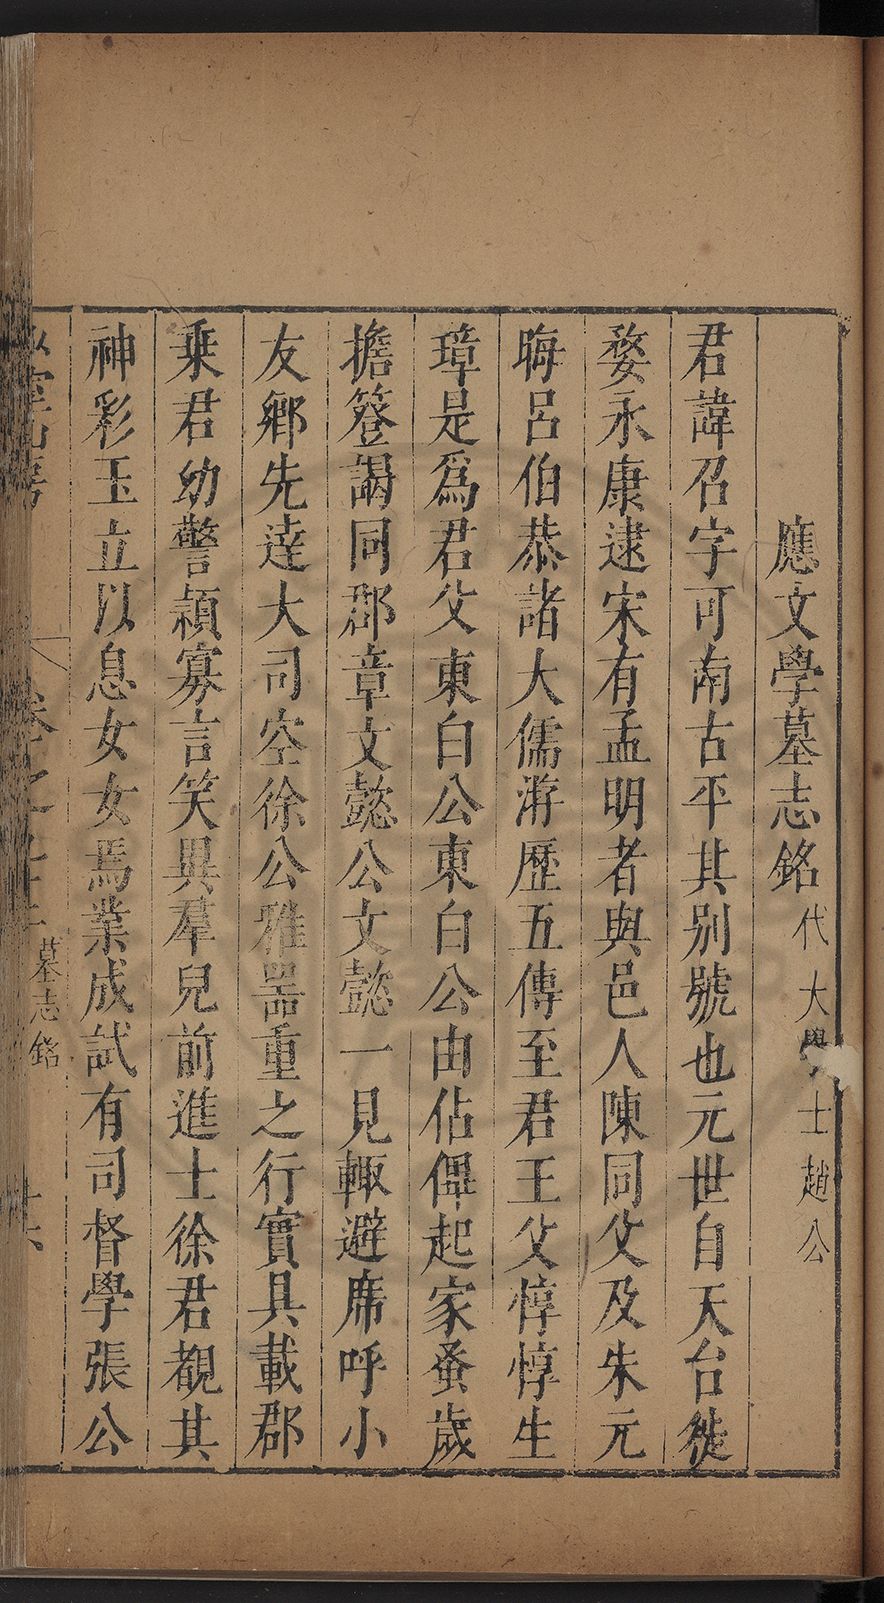 應文學墓志銘 代大學士趙公
君諱召字可南古平其别號也元世自天台徙
婺永康逮宋有孟明者與邑人陳同父及朱元
晦呂伯恭諸大儒游歷五傳至君王父惇惇生
璋是爲君父東白公東白公由佔僤起家蚤歲
擔簦謁同郡章文懿公文懿一見輙避席呼小
友鄉先逹大司空徐公雅噐重之行實具載郡
乗君幼警頴寡言笑異羣兒前進士徐君覩其
神彩玉立以息女女焉業成試有司督學張公
墓志銘